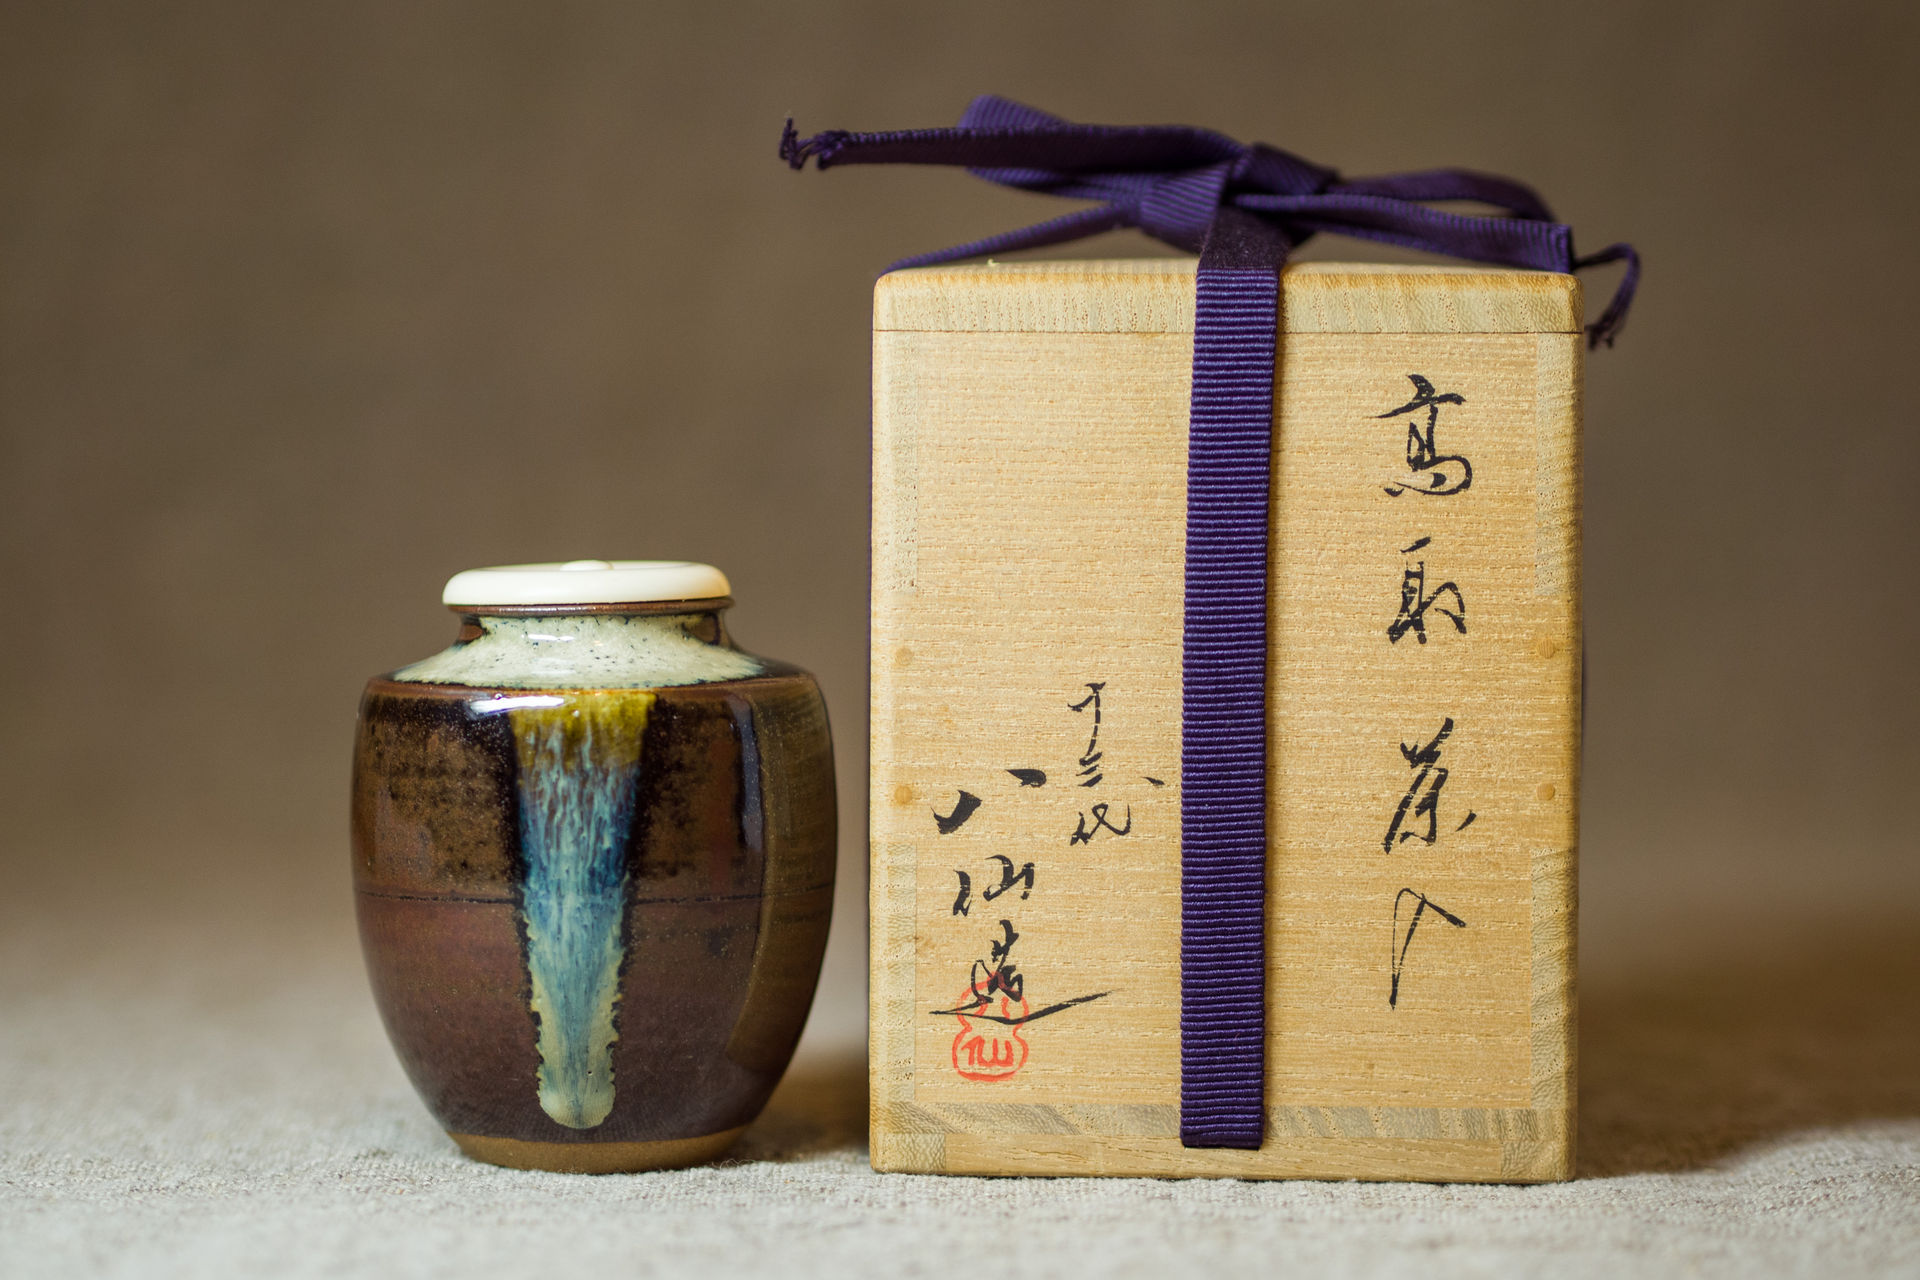 高取茶入
十三代
八仙造
仙